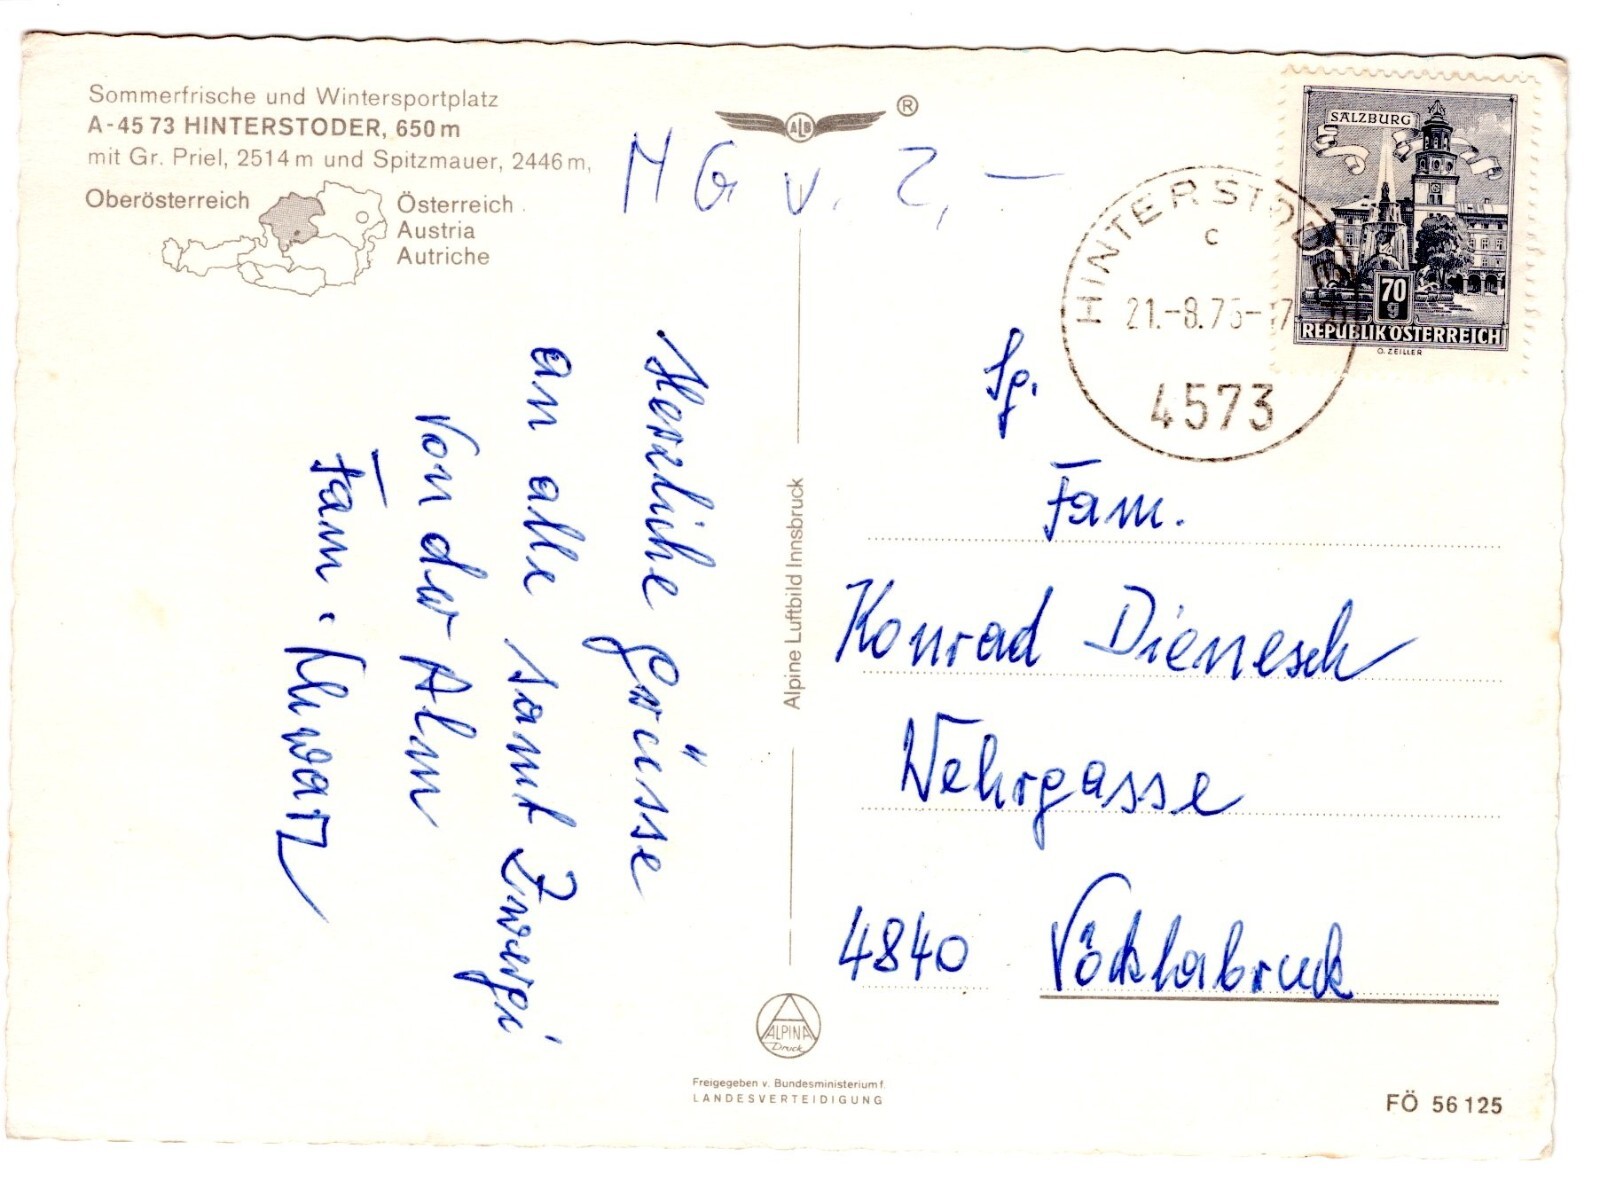 Sommerfrische und Wintersportplatz
A-4573 HINTERSTODER, 650 m
mit Gr. Priel, 2514 m und Spitzmauer, 2446 m,
Oberösterreich
Österreich
Austria
Autriche
ALB
®
HG v. 2,—
HINTERSTODER
c
21.-8.75-17
4573
SALZBURG
70
g
REPUBLIK ÖSTERREICH
O. ZEILLER
Herzliche Grüsse
an alle samt Zwergi
Von der Alm
Fam. Schwarz
Alpine Luftbild Innsbruck
Fam.
Konrad Dienesch
Wehrgasse
4840 Vöcklabruck
ALPINA
Druck
Freigegeben v. Bundesministerium f.
LANDESVERTEIDIGUNG
FÖ 56 125